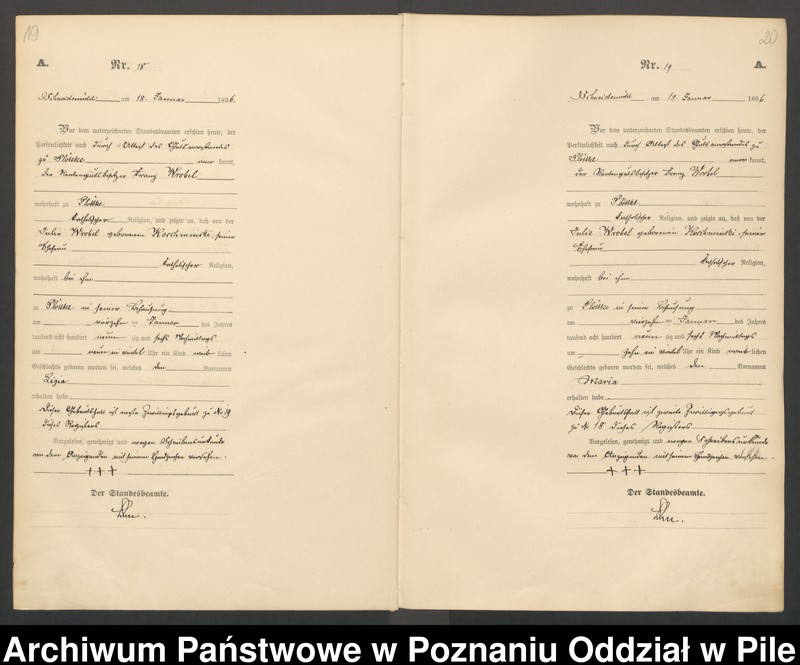 19
A.
Nr. 18
Schneidemühl am 18. Januar 1896.
Vor dem unterzeichneten Standesbeamten erschien heute, der
Persönlichkeit nach durch Attest des Gutsvorstandes
zu Plöttke kannt,
der Rentengutsbesitzer Franz Wrobel
wohnhaft zu Plöttke
katholischer Religion, und zeigte an, daß von der
Julie Wrobel geborenen seiner
Ehefrau
katholischer Religion,
wohnhaft bei ihm
zu Plöttke in seiner Behausung
am vierzehn ten Januar des Jahres
tausend acht hundert neun zig und sechs Nachmittags
um neun ein viertel Uhr ein Kind weib lichen
Geschlechts geboren worden sei, welches den Vornamen
Ligia
erhalten habe.
Dieser Geburtsfall ist erste Zwillingsgeburt zu № 19
dieses Registers
Vorgelesen, genehmigt und wegen Schreibensunkunde
von dem Anzeigenden mit seinem Handzeichen versehen.
+++
Der Standesbeamte.
20
Nr. 19
A.
Schneidemühl am 18. Januar 1896
Vor dem unterzeichneten Standesbeamten erschien heute, der
Persönlichkeit nach durch Attest des Gutsvorstandes zu
Plöttke kannt,
der Rentengutsbesitzer Franz Wrobel
wohnhaft zu Plöttke
katholischer Religion, und zeigte an, daß von der
Julie Wrobel geborenen seiner
Ehefrau
katholischer Religion,
wohnhaft bei ihm
zu Plöttke in seiner Behausung
am vierzehn ten Januar des Jahres
tausend acht hundert neun zig und sechs Nachmittags
um zehn ein viertel Uhr ein Kind weib lichen
Geschlechts geboren worden sei, welches den Vornamen
Maria
erhalten habe.
Dieser Geburtsfall ist zweite Zwillingsgeburt
zu № 18 dieses Registers
Vorgelesen, genehmigt und wegen Schreibensunkunde
von dem Anzeigenden mit seinem Handzeichen versehen.
+++
Der Standesbeamte.
Archiwum Państwowe w Poznaniu Oddział w Pile